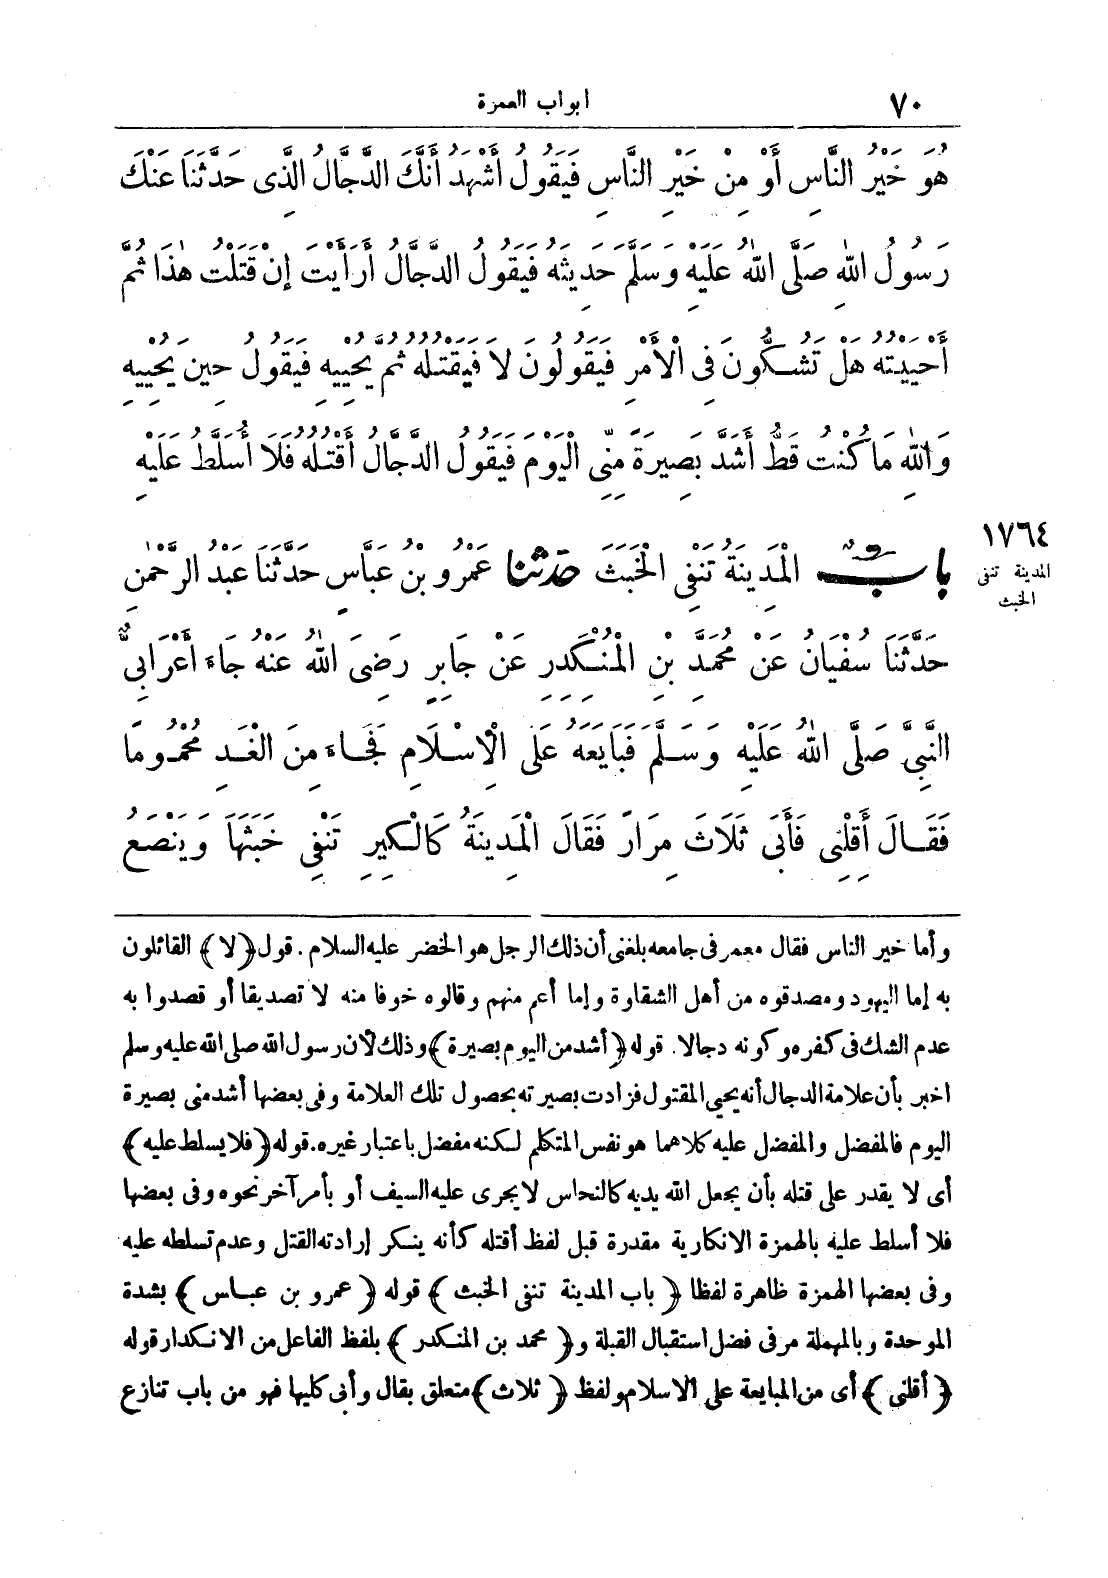 ٧٠
ابواب العمرة
هُوَ خَيْرُ النَّاسِ أَوْ مِنْ خَيْرِ النَّاسِ فَيَقُولُ أَشْهَدُ أَنَّكَ الدَّجَّالُ الَّذِى حَدَّثَنَا عَنْكَ
رَسُولُ اللهِ صَلَّى اللهُ عَلَيْهِ وَسَلَّمَ حَدِيثَهُ فَيَقُولُ الدَّجَّالُ أَرَأَيْتَ إِنْ قَتَلْتُ هٰذَا ثُمَّ
أَحْيَيْتُهُ هَلْ تَشُكُّونَ فِى الْأَمْرِ فَيَقُولُونَ لَا فَيَقْتُلُهُ ثُمَّ يُحْيِيهِ فَيَقُولُ حِينَ يُحْيِيهِ
وَاللهِ مَا كُنْتُ قَطُّ أَشَدَّ بَصِيرَةً مِنِّى الْيَوْمَ فَيَقُولُ الدَّجَّالُ أَقْتُلُهُ فَلَا أُسَلَّطُ عَلَيْهِ
١٧٦٤
المدينة تنفى
الخبث
بابٌ الْمَدِينَةُ تَنْفِى الْخَبَثَ حدثنا عَمْرُو بْنُ عَبَّاسٍ حَدَّثَنَا عَبْدُ الرَّحْمٰنِ
حَدَّثَنَا سُفْيَانُ عَنْ مُحَمَّدِ بْنِ الْمُنْكَدِرِ عَنْ جَابِرٍ رَضِىَ اللهُ عَنْهُ جَاءَ أَعْرَابِىٌّ
النَّبِىَّ صَلَّى اللهُ عَلَيْهِ وَسَلَّمَ فَبَايَعَهُ عَلَى الْإِسْلَامِ فَجَاءَ مِنَ الْغَدِ مَحْمُومًا
فَقَالَ أَقِلْنِى فَأَبَى ثَلَاثَ مِرَارٍ فَقَالَ الْمَدِينَةُ كَالْكِيرِ تَنْفِى خَبَثَهَا وَيَنْصَعُ
وأما خير الناس فقال معمر فى جامعه بلغنى أن ذلك الرجل هو الخضر عليه السلام . قول ﴿لا﴾ القائلون
به إما اليهود ومصدقوه من أهل الشقاوة وإما أعم منهم وقالوه خوفا منه لا تصديقا أو قصدوا به
عدم الشك فى كفره وكونه دجالا. قوله ﴿أشد من اليوم بصيرة﴾ وذلك لأن رسول الله صلى الله عليه وسلم
اخبر بأن علامة الدجال أنه يحيى المقتول فزادت بصيرته بحصول تلك العلامة وفى بعضها أشد منى بصيرة
اليوم فالمفضل والمفضل عليه كلاهما هو نفس المتكلم لكنه مفضل باعتبار غيره. قوله ﴿فلا يسلط عليه﴾
أى لا يقدر على قتله بأن يجعل الله يديه كالنحاس لا يجرى عليه السيف أو بأمر آخر نحوه وفى بعضها
فلا أسلط عليه بالهمزة الانكارية مقدرة قبل لفظ أقتله كأنه ينكر إرادته القتل وعدم تسلطه عليه
وفى بعضها الهمزة ظاهرة لفظا ﴿باب المدينة تنفى الخبث﴾ قوله ﴿عمرو بن عباس﴾ بشدة
الموحدة وبالمهملة مر فى فضل استقبال القبلة و﴿محمد بن المنكدر﴾ بلفظ الفاعل من الانكدار قوله
﴿أقلنى﴾ أى من المبايعة على الاسلام ولفظ ﴿ثلاث﴾ متعلق بقال وأبى كليها فهو من باب تنازع